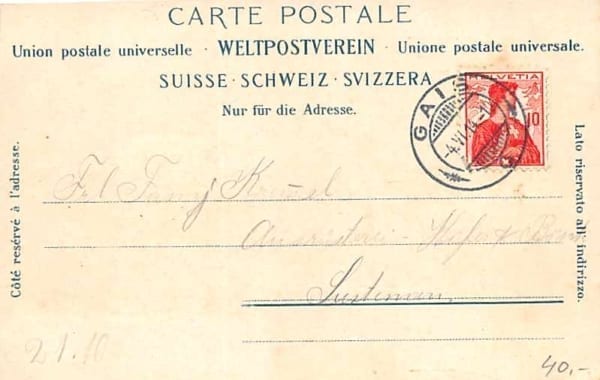 CARTE POSTALE
Union postale universelle · WELTPOSTVEREIN · Unione postale universale.
SUISSE · SCHWEIZ · SVIZZERA
Nur für die Adresse.
HELVETIA
10
GAIS
-4.VI.14-
Côté resérvé à l'adresse.
Lato riservato all' indirizzo.
Frl. Fanny
21.10
40.-